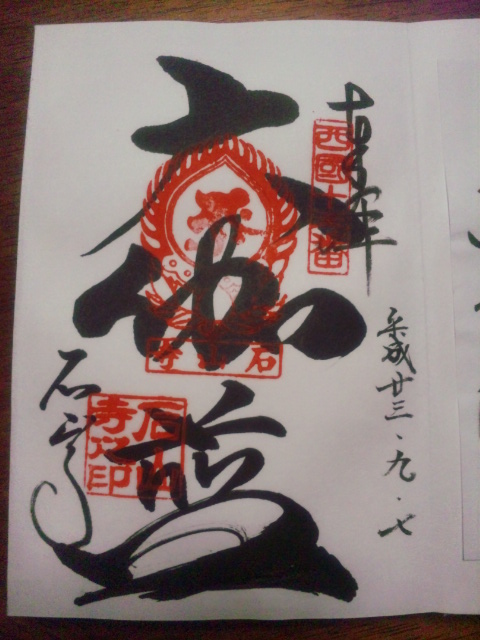 奉拝
西國十三番
平成廿三・九・七
大伽藍
石山寺
石山寺
石山
寺 印